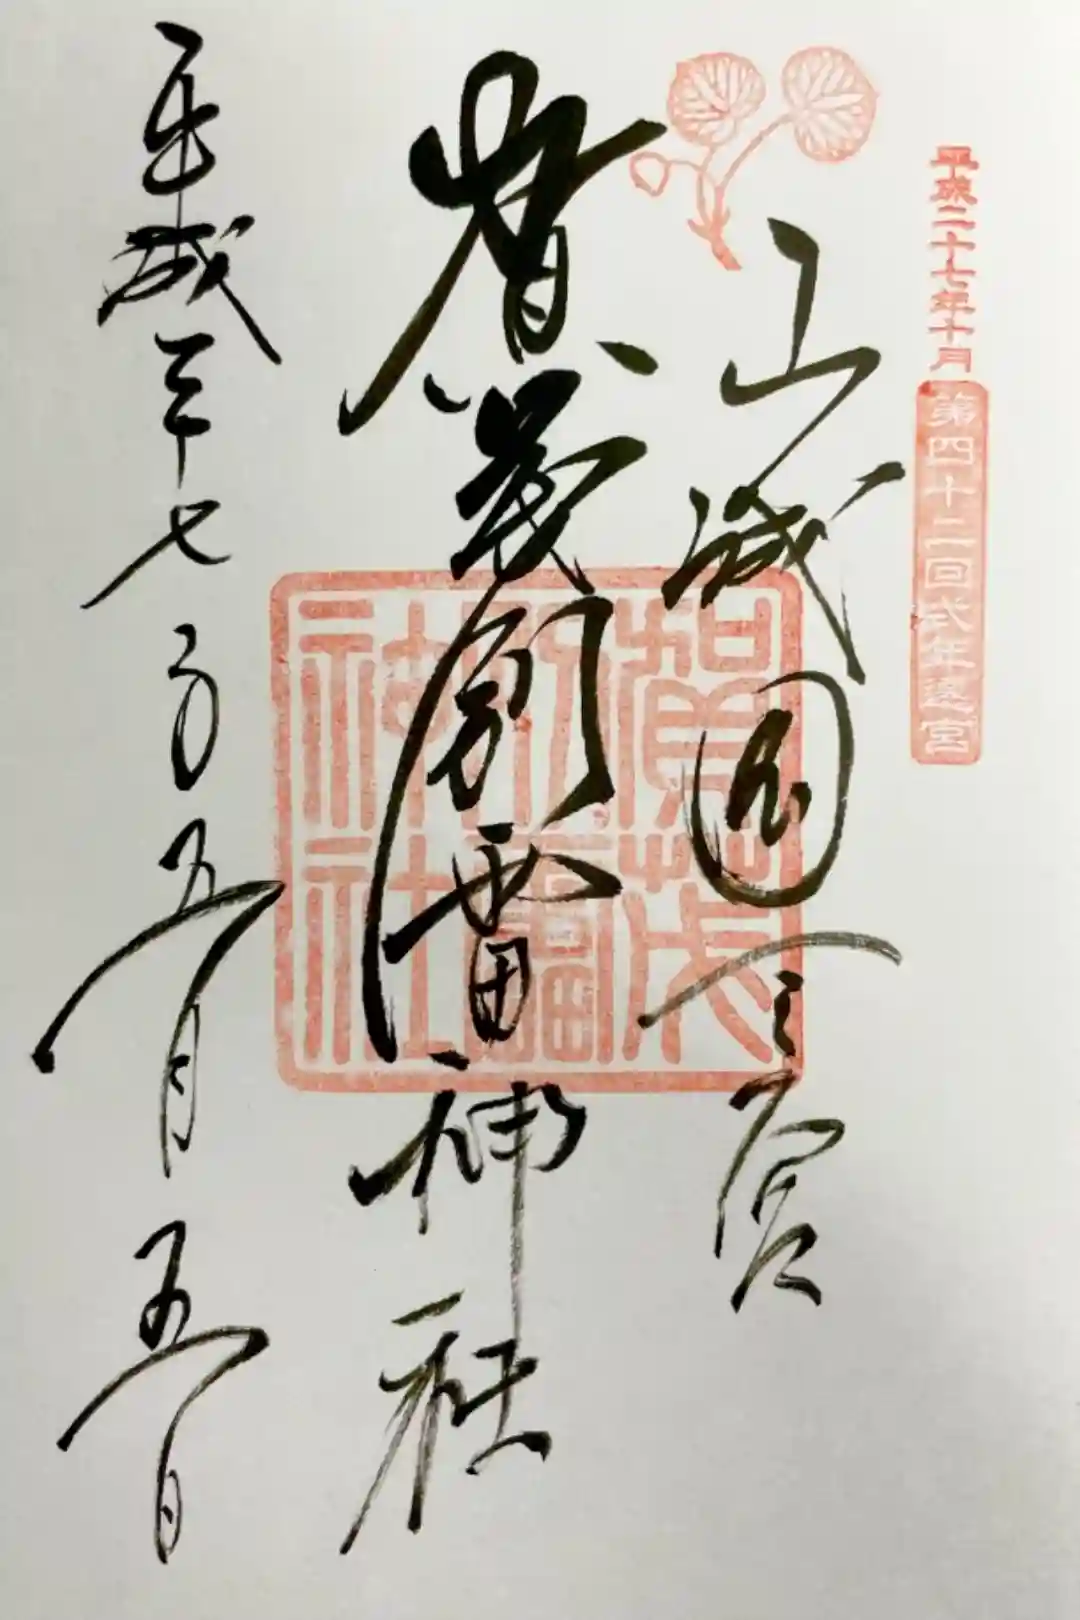 平成二十七年十月
第四十二回式年遷宮
山城國一之宮
賀茂別雷神社
賀茂
別雷
神社
平成二十七年五月五日